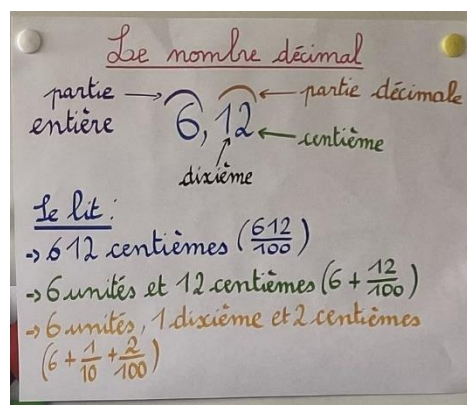 Le nombre décimal
partie → ← partie décimale
entière 6,12 ← centième
dixième
Se lit :
→ 612 centièmes (612/100)
→ 6 unités et 12 centièmes (6 + 12/100)
→ 6 unités, 1 dixième et 2 centièmes
(6 + 1/10 + 2/100)